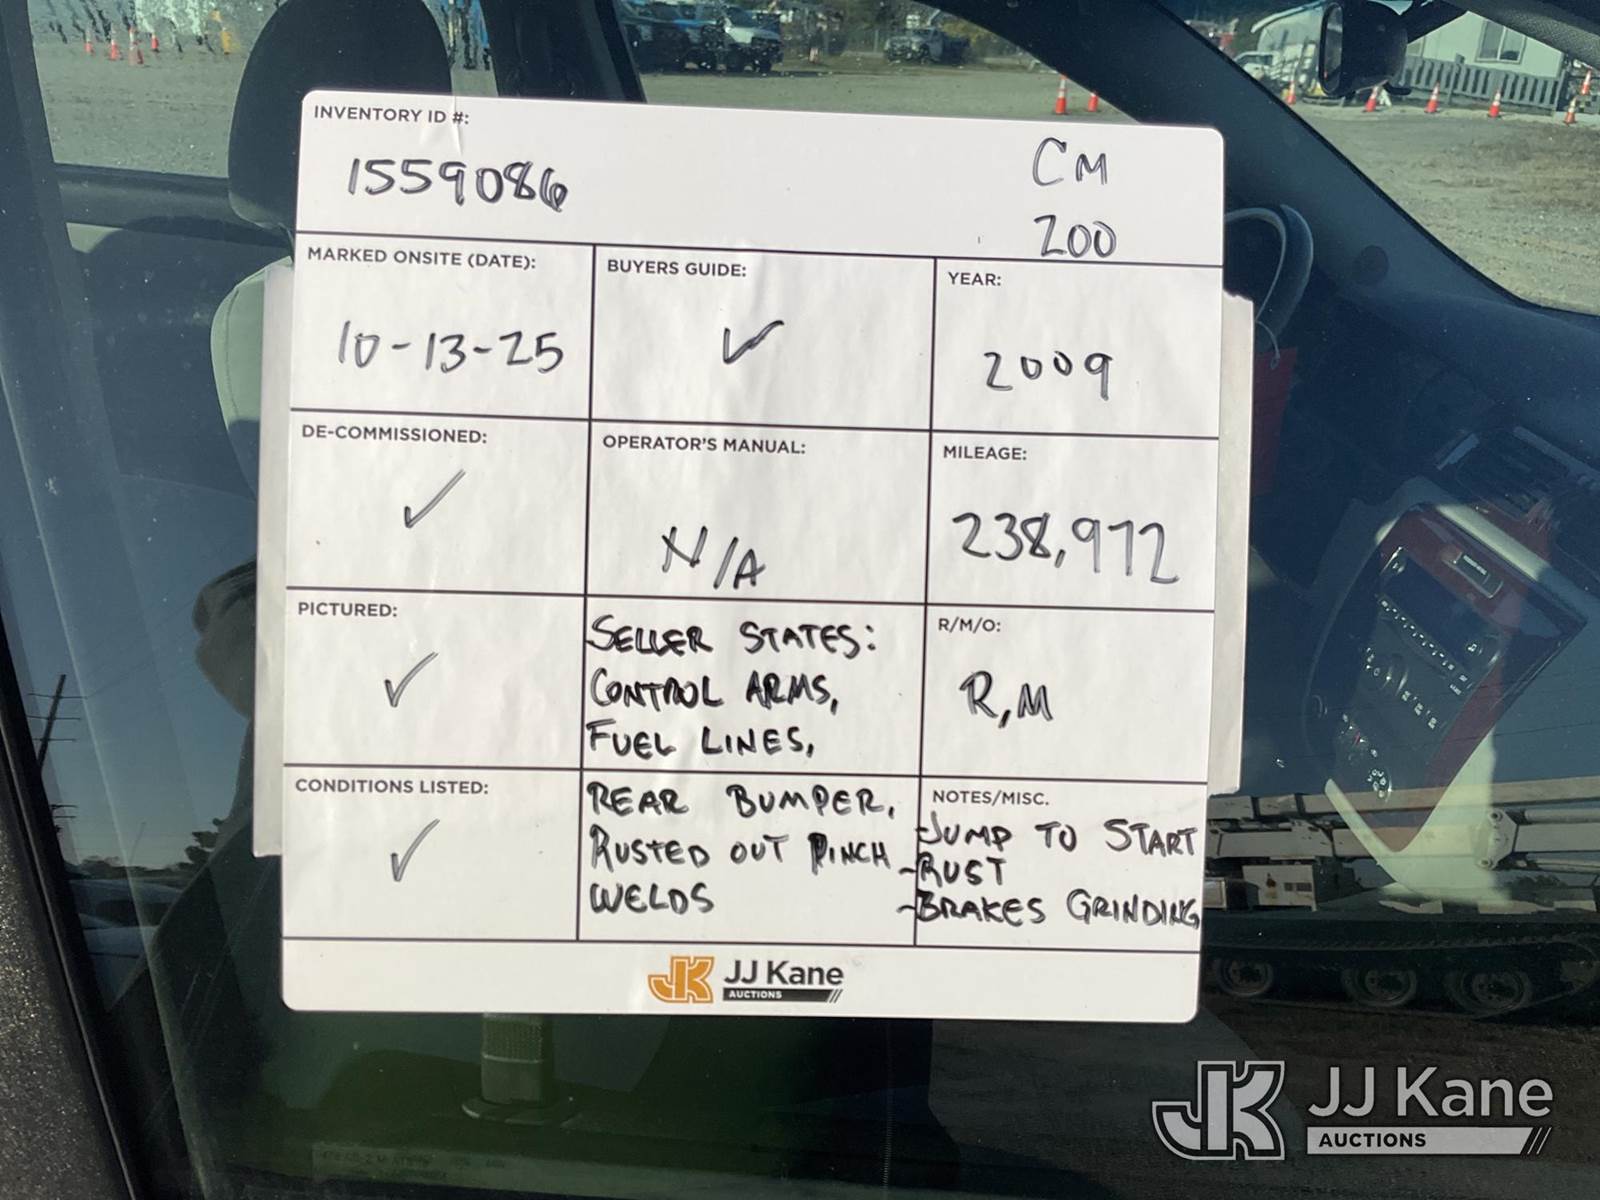 INVENTORY ID #:
1559086
CM
200
MARKED ONSITE (DATE):
10-13-25
BUYERS GUIDE:
✓
YEAR:
2009
DE-COMMISSIONED:
✓
OPERATOR'S MANUAL:
N/A
MILEAGE:
238,972
PICTURED:
✓
SELLER STATES:
CONTROL ARMS,
FUEL LINES,
REAR BUMPER,
RUSTED OUT PINCH
WELDS
R/M/O:
R,M
CONDITIONS LISTED:
✓
NOTES/MISC.
-JUMP TO START
-RUST
-BRAKES GRINDING
JJ Kane
AUCTIONS
JJ Kane
AUCTIONS